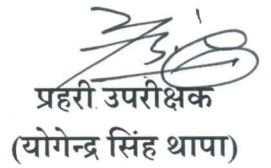 प्रहरी उपरीक्षक
(योगेन्द्र सिंह थापा)